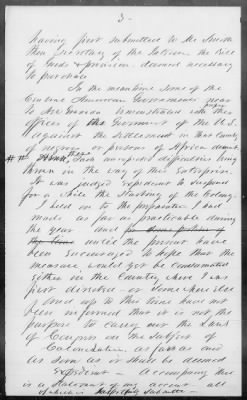 3
having first submitted to the
then Secretary of the Interior the
of Goods & provisions deemed necessary
to purchase
In the meantime some of the
Central American Governments near
to New Granada remonstrated with the
officers of the Government of the U.S.
against the settlement in that County
of negroes or persons of African descent
Such unexpected difficulties being
thrown in the way of this Enterprise.
It was judged expedient to suspend
for a while the starting of the Colony.
I held on to the preparations I had
made as far as practicable during
the year and
until the present have
been encouraged to hope that the
measure would yet be Consummated
either in the Country where I was
first directed or Some where else
and up to this time have not
been informed that it is not the
purpose to carry out the Law
of Congress on the subject of
Colonization as fast and
as soon as it shall be deemed
expedient - Accompanying this
is a Statement of my account all
of which is Respectfully Submitted